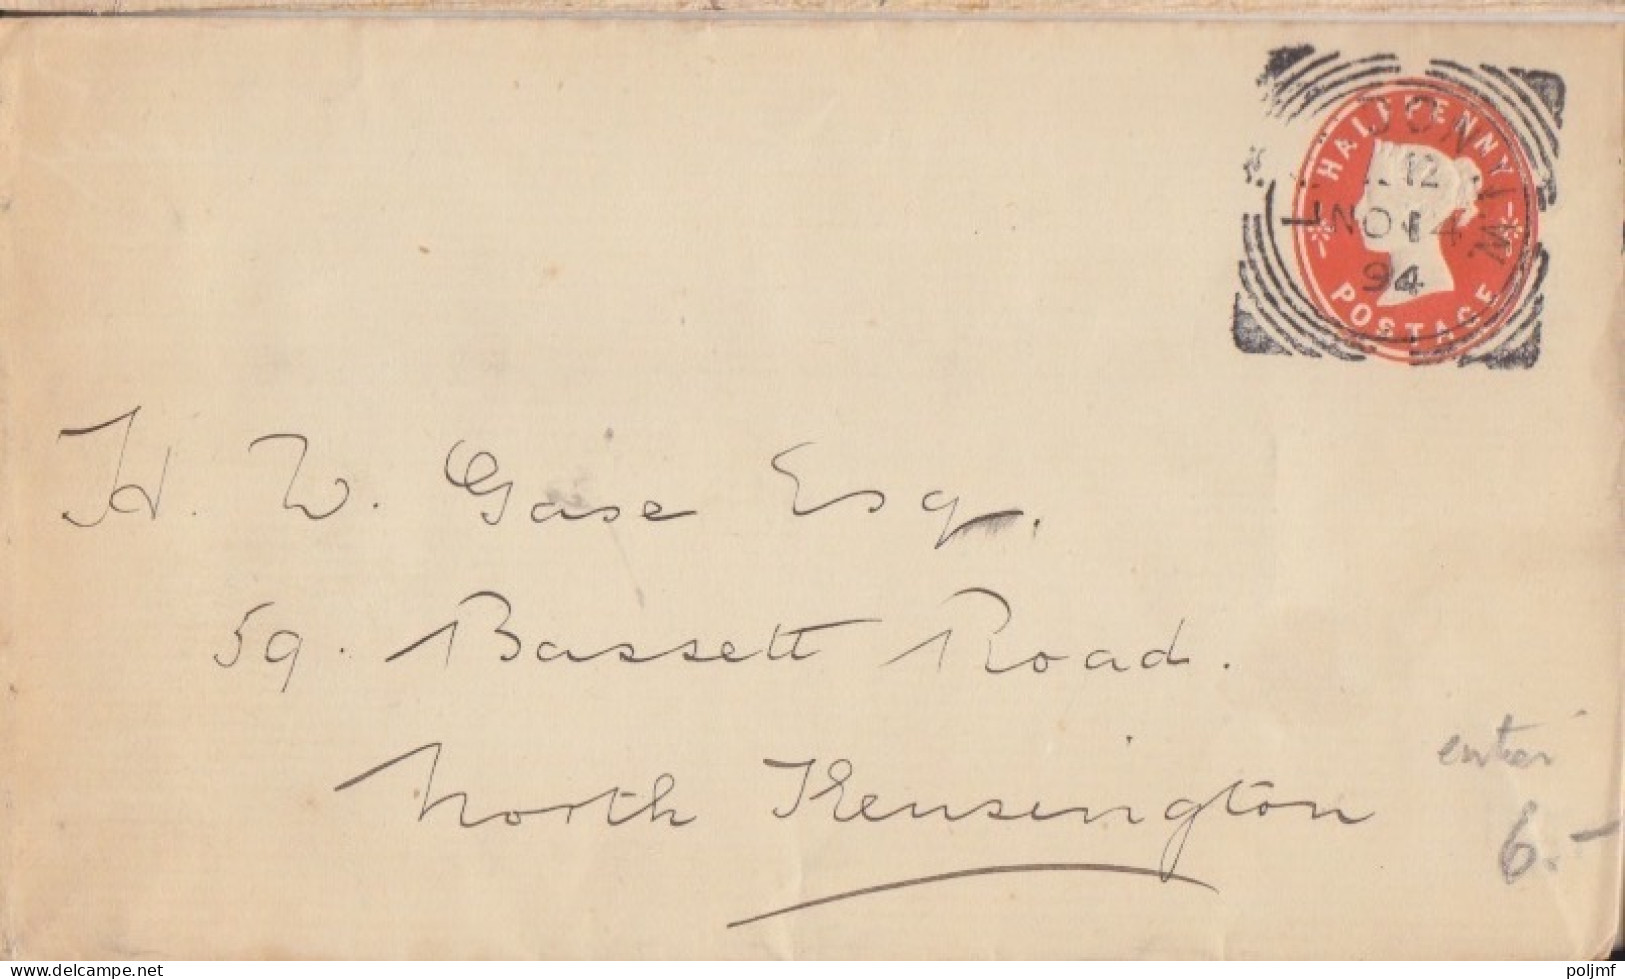 HALFPENNY
POSTAGE
LONDON. W
12
NO 14
94
H. W. Gase Esq.
59. Bassett Road.
North Kensington
6.-
www.delcampe.net
poljmf